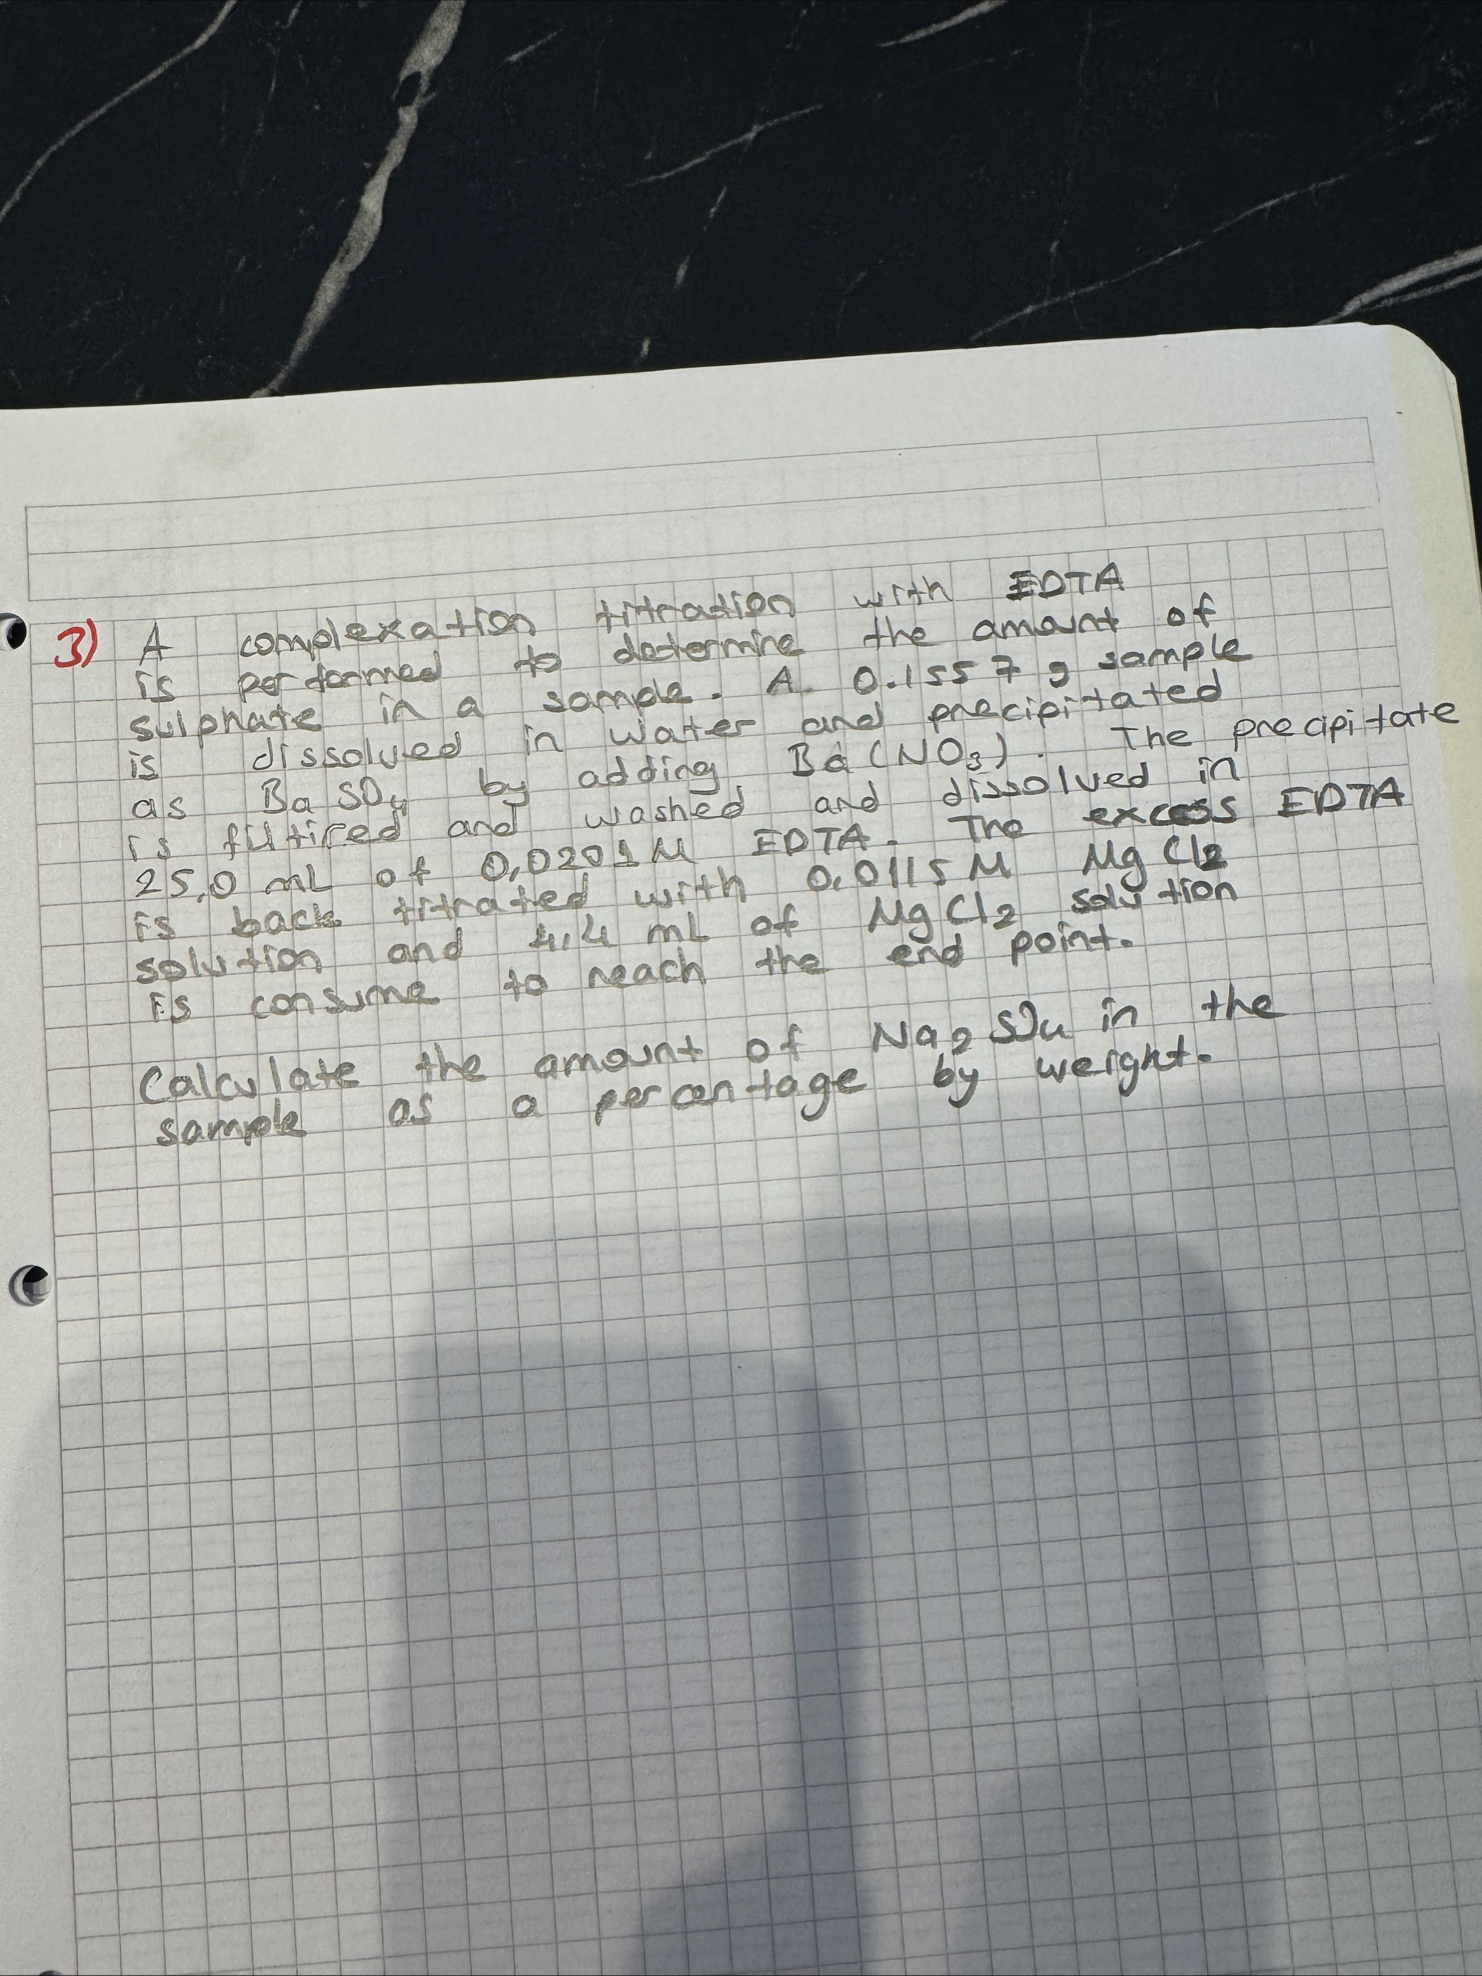 3) A complexation titration with EDTA
is performed to determine the amount of
sulphate in a sample. A 0.1557 g sample
is dissolved in water and precipitated
as BaSO4 by adding Ba(NO3). The precipitate
is filtired and washed and dissolved in
25,0 mL of 0,0201M EDTA. The excess EDTA
is back titrated with 0.0115M MgCl2
solution and 4,4 mL of MgCl2 solution
is consume to reach the end point.
Calculate the amount of Na2SO4 in the
sample as a percentage by weight.